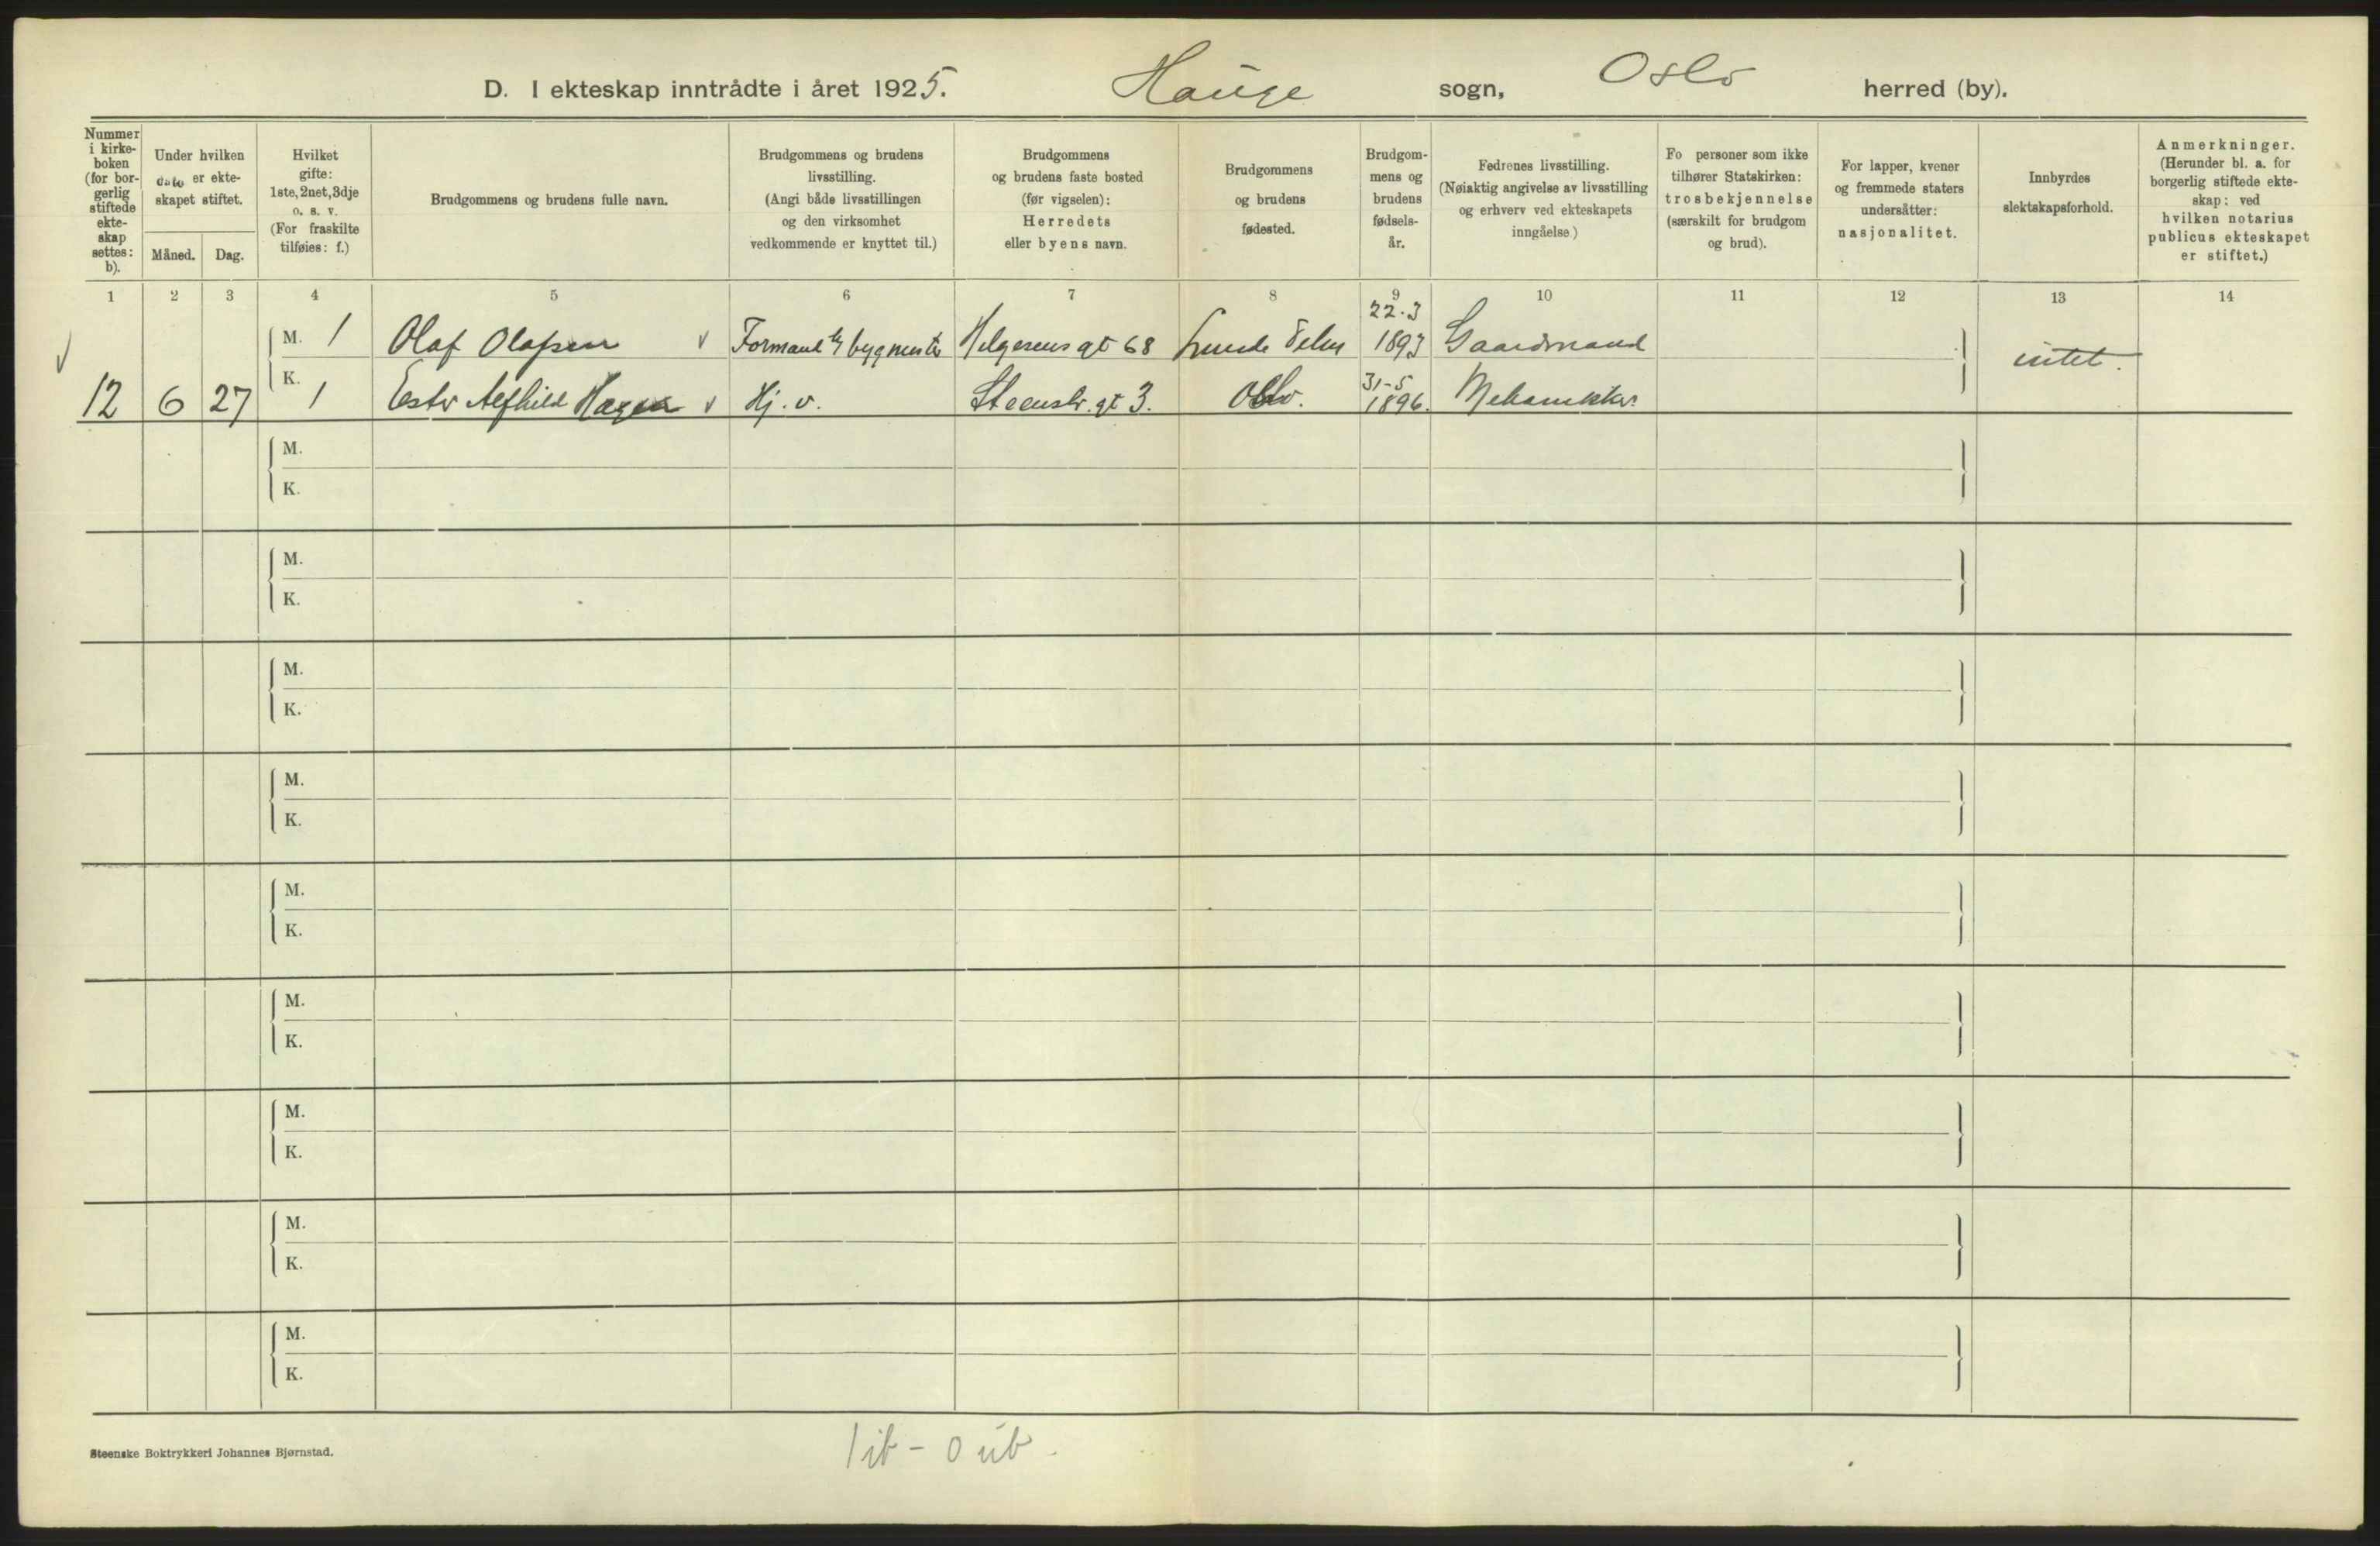 D. I ekteskap inntrådte i året 1925. Hauge sogn, Oslo herred (by).
Nummer i kirke-boken (for bor-gerlig stiftede ekte-skap settes: b).
Under hvilken dato er ekte-skapet stiftet.
Måned. Dag.
Hvilket gifte: 1ste, 2net, 3dje o. s. v. (For fraskilte tilføies: f.)
Brudgommens og brudens fulle navn.
Brudgommens og brudens livsstilling. (Angi både livsstillingen og den virksomhet vedkommende er knyttet til.)
Brudgommens og brudens faste bosted (før vigselen): Herredets eller byens navn.
Brudgommens og brudens fødested.
Brudgom-mens og brudens fødsels-år.
Fedrenes livsstilling. (Nøiaktig angivelse av livsstilling og erhverv ved ekteskapets inngåelse.)
Fo personer som ikke tilhører Statskirken: trosbekjennelse (særskilt for brudgom og brud).
For lapper, kvener og fremmede staters undersåtter: nasjonalitet.
Innbyrdes slektskapsforhold.
Anmerkninger. (Herunder bl. a. for borgerlig stiftede ekte-skap: ved hvilken notarius publicus ekteskapet er stiftet.)
1 2 3 4 5 6 7 8 9 10 11 12 13 14
M. 1 Olaf Olafsen v Formand bygmester Helgesens gt 68 Lunde Telem 22.3 1893 Gaardmand intet.
12 6 27 K. 1 Ester Alfhild Hagen v Hj. v. Steenstr. gt 3. Oslo. 31-5 1896. Mekaniker
M.
K.
M.
K.
M.
K.
M.
K.
M.
K.
M.
K.
M.
K.
M.
K.
M.
K.
Steenske Boktrykkeri Johannes Bjørnstad.
1 ib - 0 ub.